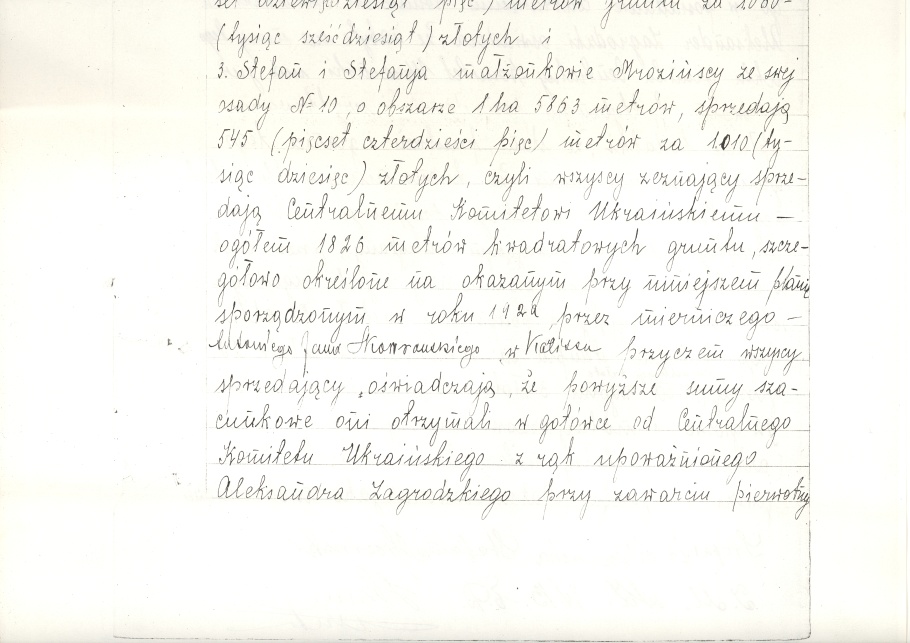 set dziewięćdziesiąt pięć) metrów gruntu za 1060-
(tysiąc sześćdziesiąt) złotych i
3. Stefan i Stefanja małżonkowie Mrozińscy ze swej
osady № 10, o obszarze 1 ha 5863 metrów, sprzedają
545 (pięcset czterdzieści pięc) metrów za 1010 (ty-
siąc dziesięc) złotych, czyli wszyscy zeznający sprze-
dają Centralnemu Komitetowi Ukraińskiemu —
ogółem 1826 metrów kwadratowych gruntu, szcze-
gółowo określone na okazanym przy niniejszem planie
sporządzonym w roku 1929 przez mierniczego —
Antoniego Jana w Kaliszu przyczem wszyscy
sprzedający oświadczają, że powyższe sumy sza-
cunkowe oni otrzymali w gotówce od Centralnego
Komitetu Ukraińskiego z rąk upoważnionego
Aleksandra Zagrodzkiego przy zawarciu